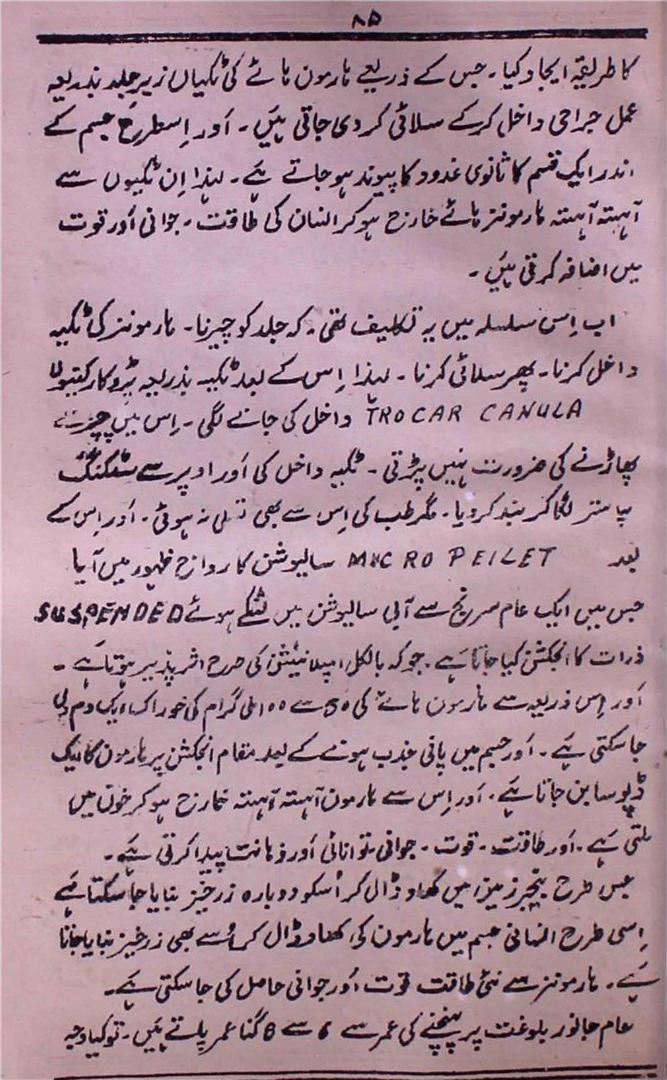 ۸۵
کا طریقہ ایجاد کیا۔ جس کے ذریعے ہارمون ہائے کی ٹکیاں زیر جلد بذریعہ
عمل جراحی داخل کرکے سلائی کر دی جاتی ہیں۔ اور اسطرح جسم کے
اندر ایک قسم کا ثانوی غدود کا پیوند ہو جاتے ہے۔ لہذا ان ٹکیوں سے
آہستہ آہستہ ہارمونز ہائے خارج ہو کر انسان کی طاقت۔ جوانی اور قوت
میں اضافہ کرتی ہیں۔
اب اس سلسلہ میں یہ تکلیف تھی۔ کہ جلد کو چیرنا۔ ہارمونز کی ٹکیہ
داخل کرنا۔ پھر سلائی کرنا۔ لہذا اس کے بعد ٹکیہ بذریعہ ٹروکار کینولا
TROCAR CANULA داخل کی جانے لگی۔ اس میں چیرنے
پھاڑنے کی ضرورت نہیں پڑتی۔ ٹکیہ داخل کی اور اوپر سے سٹکنگ
پلاستر لگا کر بند کر دیا۔ مگر طب کی اس سے بھی تسلی نہ ہوئی۔ اور اس کے
بعد MICRO PEILET سالیوشن کا رواج ظہور میں آیا
جس میں ایک عام سرنج سے آبی سالیوشن میں لٹکے ہوئے SUSPENDED
ذرات کا انجکشن کیا جاتا ہے۔ جو کہ بالکل امپلانٹیشن کی طرح اثر پذیر ہوتا ہے۔
اور اس ذریعہ سے ہارمون ہائے کی 50 سے 100 ملی گرام کی خوراک یک دم دی
جا سکتی ہے۔ اور جسم میں پانی جذب ہونے کے بعد مقام انجکشن پر ہارمون کا ایک
ڈپو سا بن جاتا ہے۔ اور اس سے ہارمون آہستہ آہستہ خارج ہو کر خون میں
ملتی ہے۔ اور طاقت۔ قوت۔ جوانی توانائی اور ذہانت پیدا کرتی ہے۔
جس طرح بنجر زمین میں کھاد ڈال کر اسکو دوبارہ زرخیز بنایا جا سکتا ہے
اسی طرح انسانی جسم میں ہارمون کی کھاد ڈال کر اسے بھی زرخیز بنایا جاتا
ہے۔ ہارمونز سے نئی طاقت قوت اور جوانی حاصل کی جا سکتی ہے۔
عام جانور بلوغت پر پہنچنے کی عمر سے 6 سے 8 گنا عمر پاتے ہیں۔ تو کیا وجہ